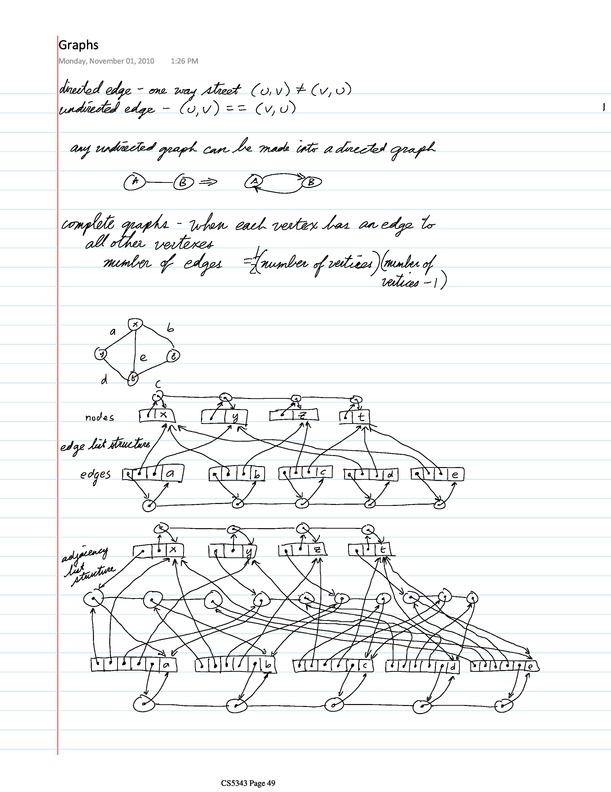 Graphs
Monday, November 01, 2010 1:26 PM
directed edge - one way street (u,v) ≠ (v,u)
undirected edge - (u,v) == (v,u)
any undirected graph can be made into a directed graph
A B ⇒ A B
complete graphs - when each vertex has an edge to
all other vertexes
number of edges = ½(number of vertices)(number of
vertices - 1)
x
a b
e
d
c
nodes x y z t
edge list structure
edges a b c d e
adjacency
list
structure
x y z t
a b c d e
CS5343 Page 49